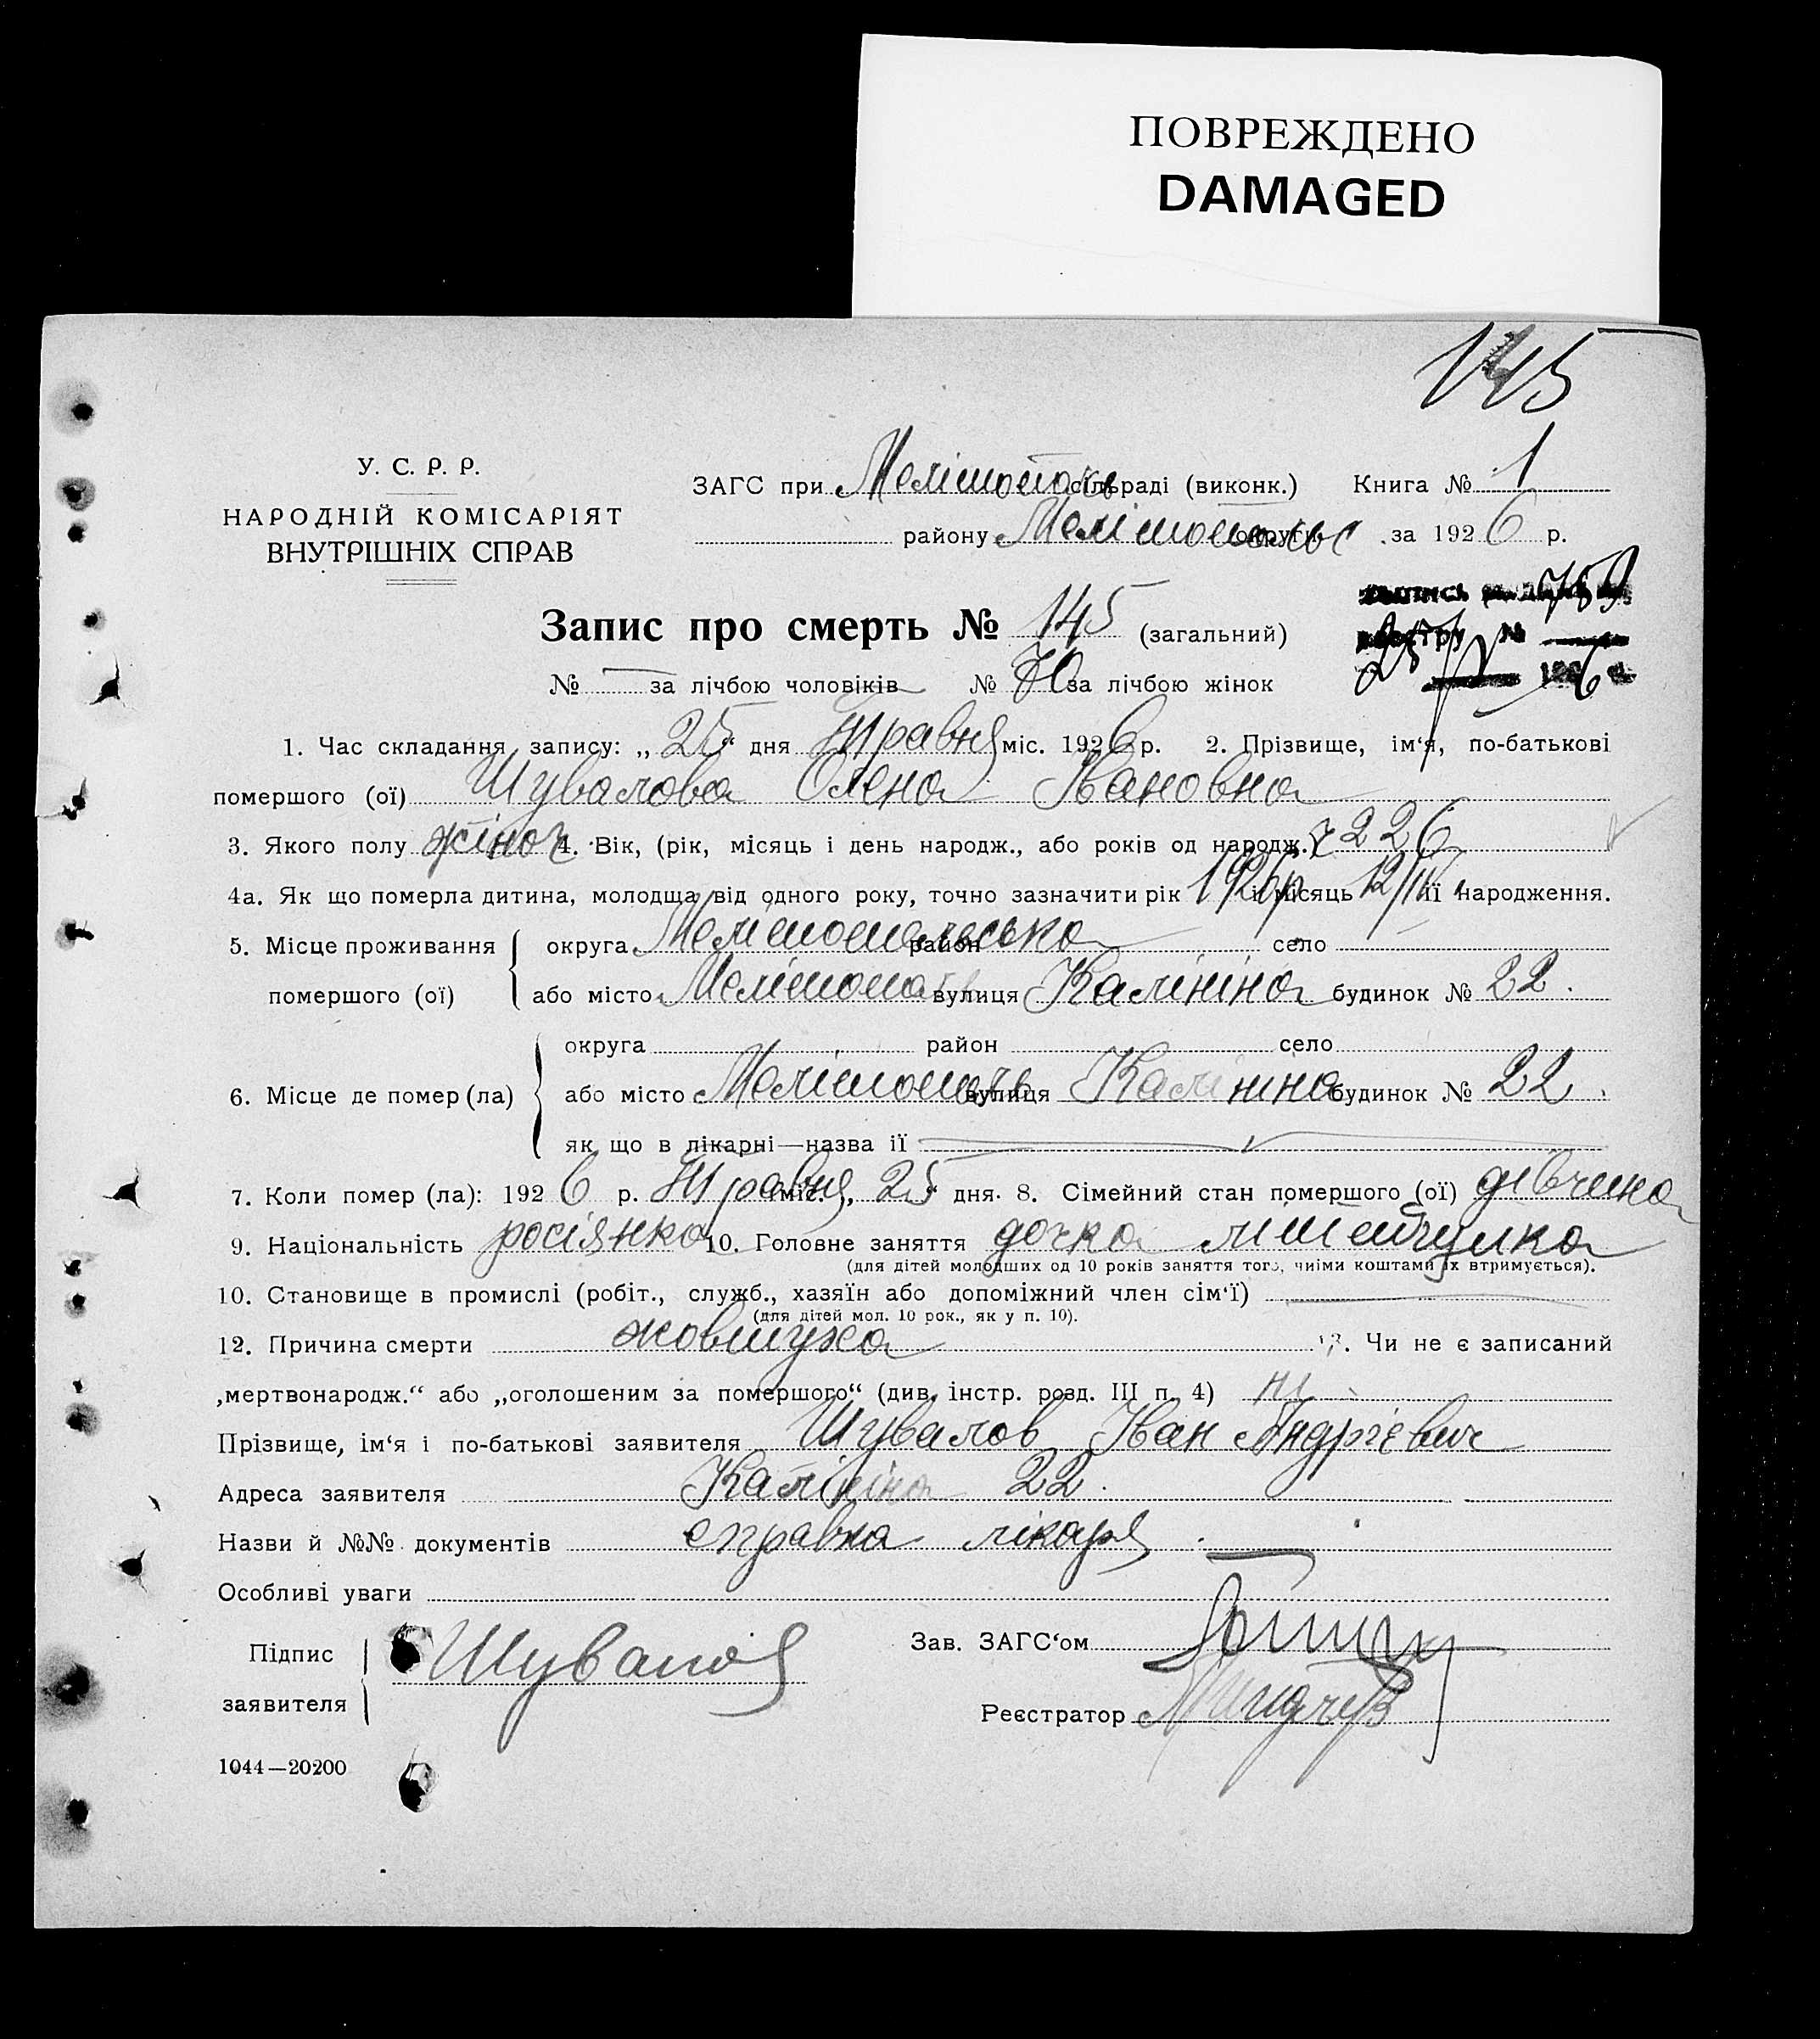 ПОВРЕЖДЕНО
DAMAGED
145
У. С. Р. Р.
НАРОДНІЙ КОМІСАРІЯТ
ВНУТРІШНІХ СПРАВ
ЗАГС при Мелітополь сільраді (виконк.) Книга № 1
району Мелітопольс округи за 1926 р.
Запис про смерть № 145 (загальний)
№ — за лічбою чоловіків № 70 за лічбою жінок
1. Час складання запису: „25“ дня Травня міс. 1926 р. 2. Прізвище, ім‘я, по-батькові
помершого (ої) Шувалова Олена Івановна
3. Якого полу жіноч 4. Вік, (рік, місяць і день народж., або років од народж.)
4а. Як що померла дитина, молодща від одного року, точно зазначити рік 1926р і місяць 12/III її народження.
5. Місце проживання округа Мелітопольська район село
помершого (ої) або місто Мелітополь вулиця Калініна будинок № 22.
округа район село
6. Місце де помер (ла) або місто Мелітополь вулиця Калініна будинок № 22.
як що в лікарні—назва її
7. Коли помер (ла): 1926 р. Травня міс., 25 дня. 8. Сімейний стан помершого (ої) дівчина
9. Національність росіянка 10. Головне заняття дочка
(для дітей молодших од 10 років заняття того, чиїми коштами їх втримується).
10. Становище в промислі (робіт., служб., хазяїн або допоміжний член сім‘ї) —
(для дітей мол. 10 рок., як у п. 10).
12. Причина смерти жовтуха 13. Чи не є записаний
„мертвонародж.“ або „оголошеним за помершого“ (див. інстр. розд. III п. 4) ні
Прізвище, ім‘я і по-батькові заявителя Шувалов Іван Андрієвич
Адреса заявителя Калініна 22.
Назви й №№ документів справка лікаря
Особливі уваги
Підпис заявителя Шувалов
Зав. ЗАГС‘ом
Реєстратор
1044—20200